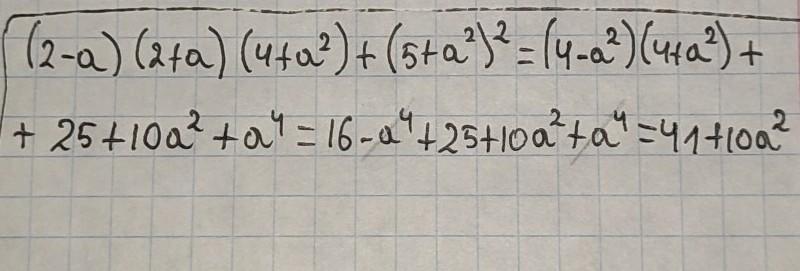 (2-a)(2+a)(4+a²)+(5+a²)²=(4-a²)(4+a²)+
+ 25+10a²+a⁴=16-a⁴+25+10a²+a⁴=41+10a²